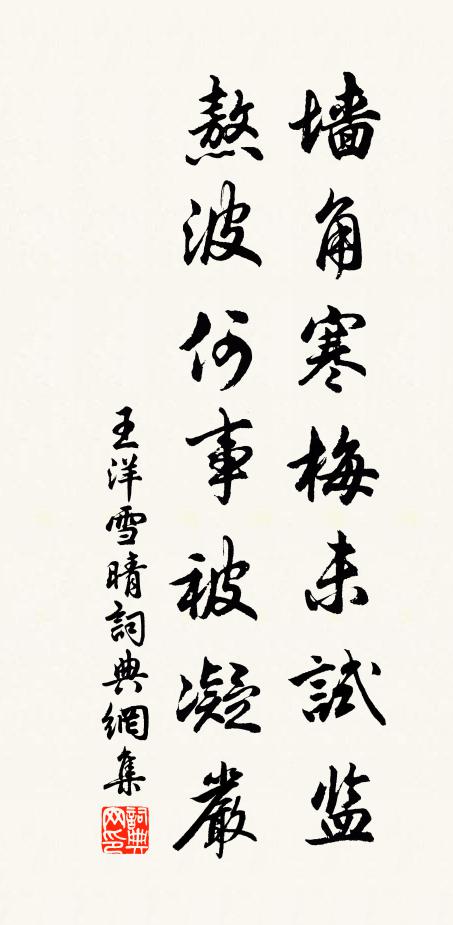 墙角寒梅未試监
熬波何事被凝嚴
王洋雪晴詞典網集
詞典网印